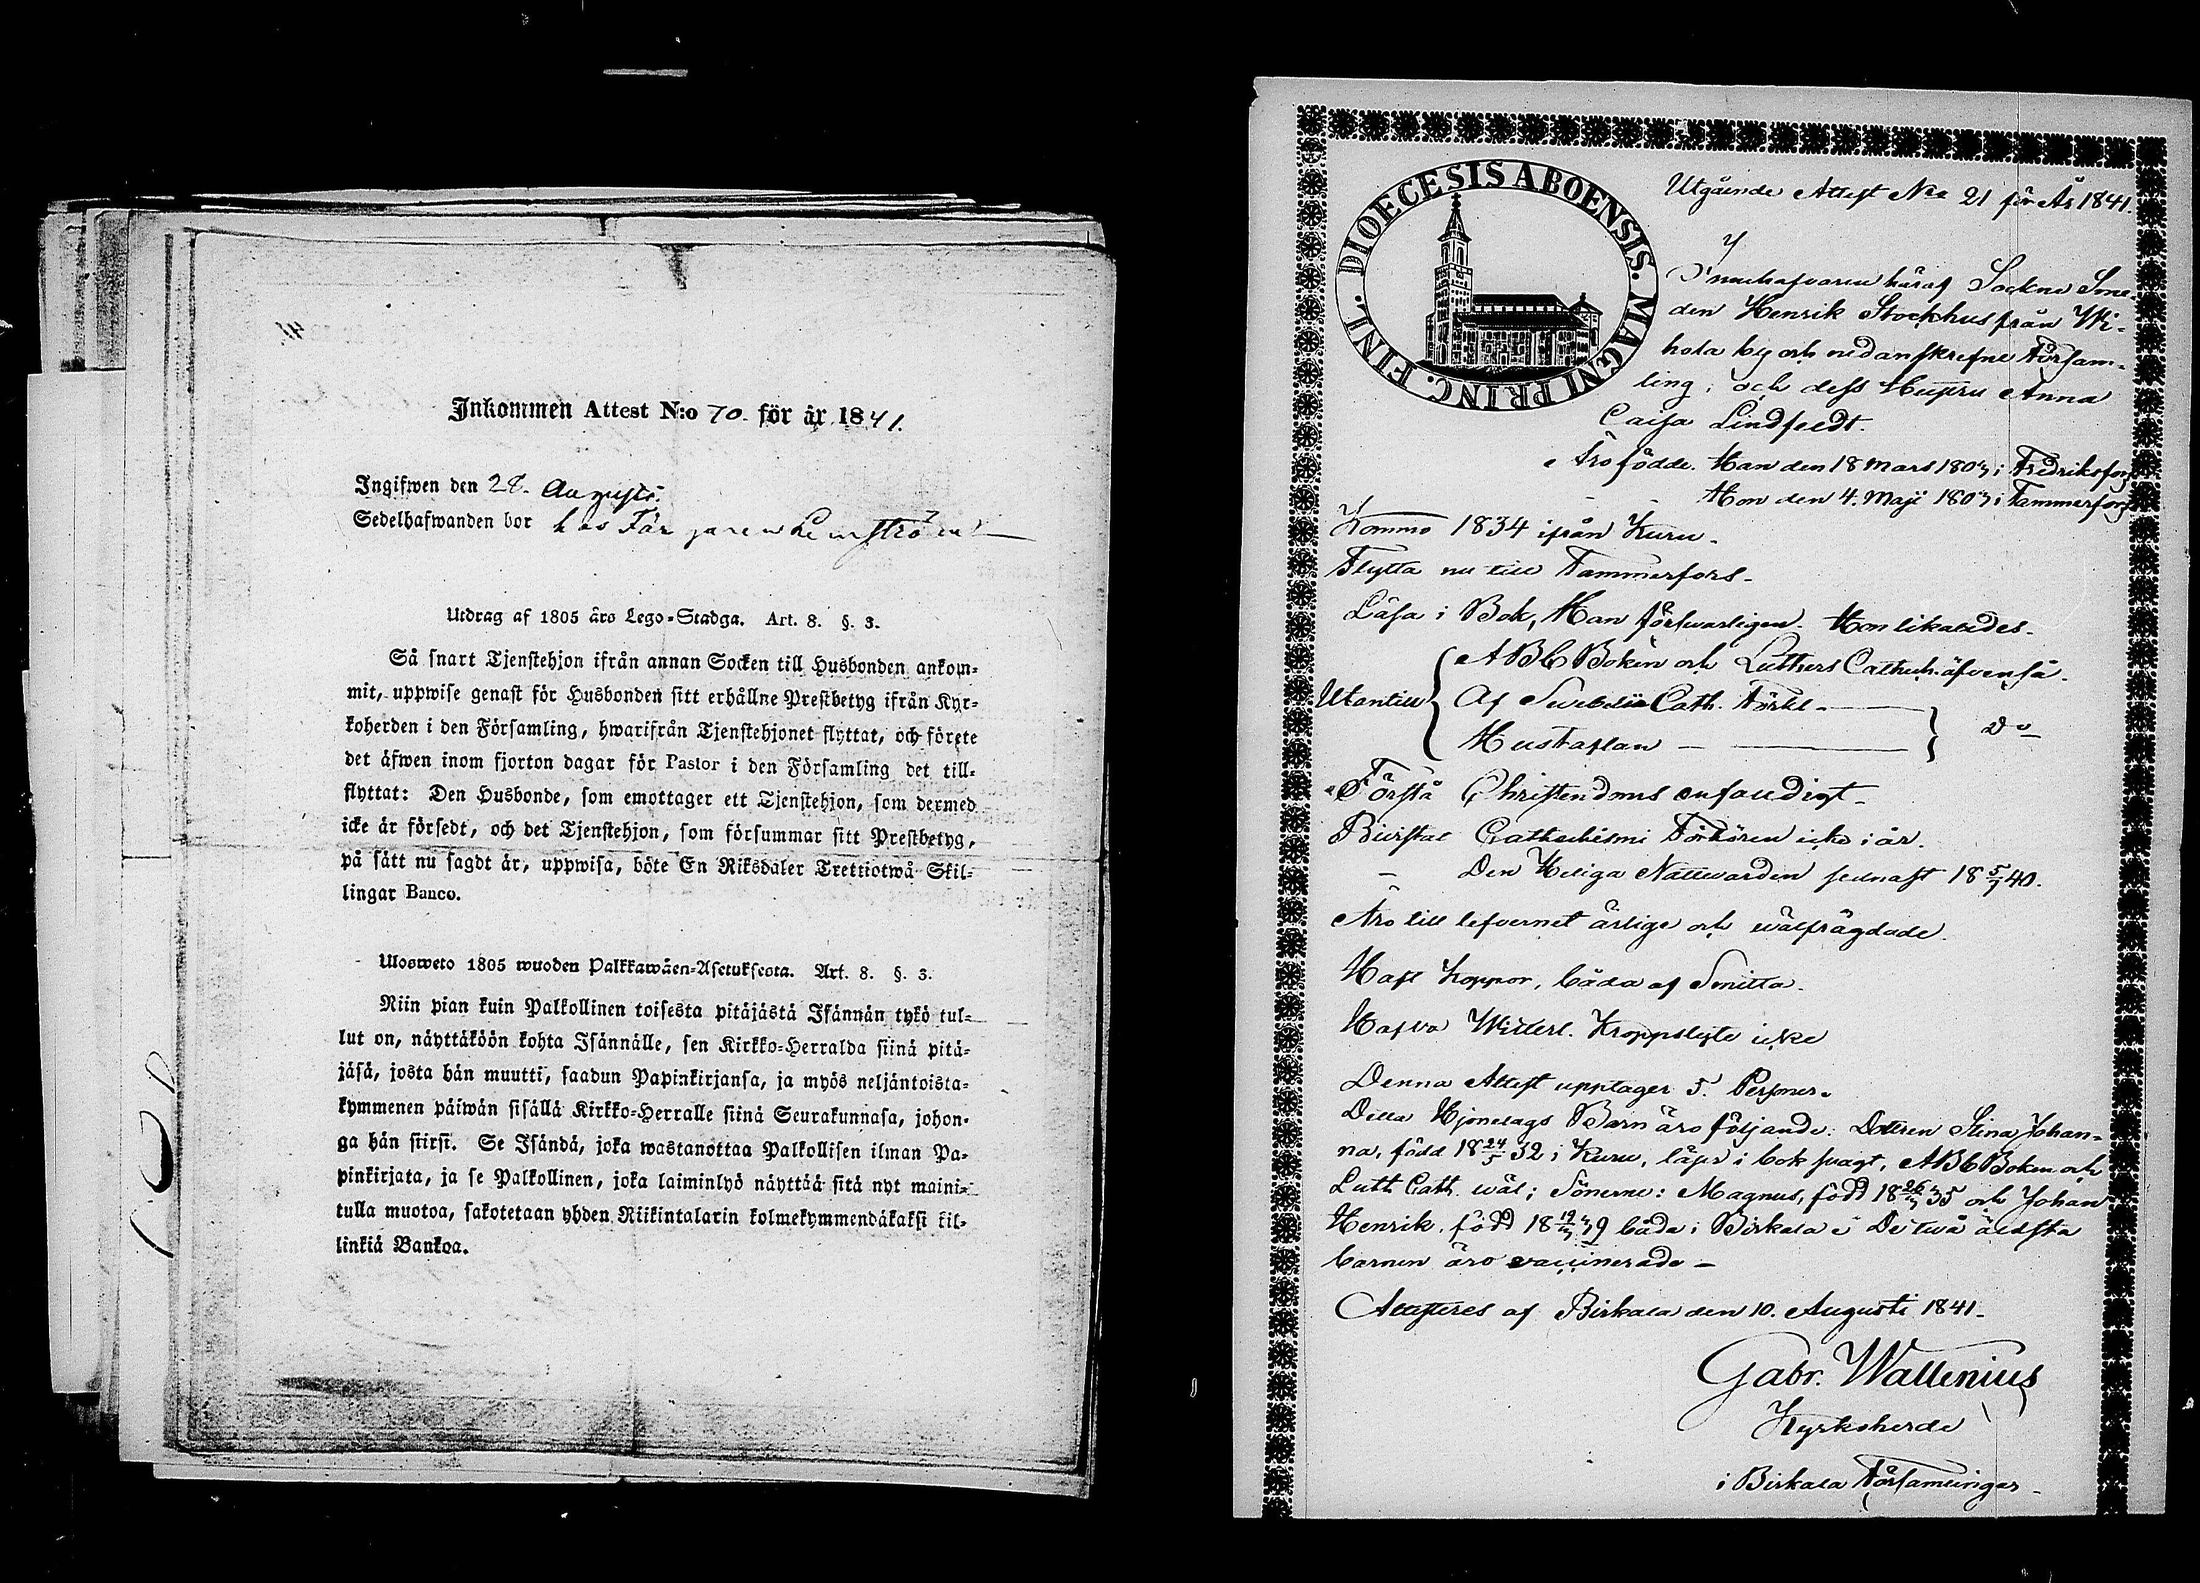 Inkommen Attest N:o 70. för år 1841.
Ingifwen den 28. Augusti.
Sedelhafwanden bor hos Färgaren
Utdrag af 1805 års Lego-Stadga. Art. 8. §. 3.
Så snart Tjenstehjon ifrån annan Socken till Husbonden ankom-
mit, uppwise genast för Husbonden sitt erhållne Prestbetyg ifrån Kyr-
koherden i den Församling, hwarifrån Tjenstehjonet flyttat, och förete
det äfwen inom fjorton dagar för Pastor i den Församling det till-
flyttat: Den Husbonde, som emottager ett Tjenstehjon, som dermed
icke är försedt, och det Tjenstehjon, som försummar sitt Prestbetyg,
på sätt nu sagdt är, uppwisa, böte En Riksdaler Trettiotwå Skil-
lingar Banco.
Ulosweto 1805 wuoden Palkkawäen-Asetuksesta. Art. 8. §. 3.
Niin pian kuin Palkollinen toisesta pitäjästä Isännän tykö tul-
lut on, näyttäköön kohta Isännälle, sen Kirkko-Herralda siinä pitä-
jäsä, josta hän muutti, saadun Papinkirjansa, ja myös neljäntoista-
kymmenen päiwän sisällä Kirkko-Herralle siinä Seurakunnasa, johon-
ga hän siirsi. Se Isändä, joka wastanottaa Palkollisen ilman Pa-
pinkirjata, ja se Palkollinen, joka laiminlyö näyttää sitä nyt maini-
tulla muotoa, sakotetaan yhden Riikintalarin kolmekymmendäkaksi kil-
linkiä Bankoa.
DIOECESIS ABOENSIS. MAGNI PRINC. FINL.
Utgående Attest No 21 för År 1841.
Innehafvaren häraf Sockne Sme-
den Henrik Stockhus från Wi-
hola by och nedanskrefne Församl-
ling, och dess Hustru Anna
Caisa Lindfeldt.
Äro födde. Han den 18 Mars 1803 i Fredriksfors
Hon den 4. Maji 1803 i Tammerfors
Komne 1834 ifrån Kuru.
Flytta nu till Tammerfors.
Läsa i Bok, Han försvarligen. Hon likaledes.
Utantill ABC Boken och Luthers Cathech. äfvenså.
Af Svebelii Cath. Förkl.
Hustaflan Do
Förstå Christendoms enfaldigt.
Bivistat Cathechismi Förhören icke i år.
Den Heliga Nattvarden sednast 18 5/7 40.
Äro till lefvernet ärlige och wälfrägdade.
Haft Koppor, båda af Smitta.
Hafva Witterl. Kroppslyte icke
Denna Attest upptager 5. Personer.
Detta Hjonelags Barn äro följande: Dottren Stina Johan-
na, född 18 24/5 32 i Kuru, läser i bok svagt, ABC Boken och
Luth. Cath. wäl; Sönerne: Magnus, född 18 26/3 35 och Johan
Henrik, född 18 19/3 39 båda i Birkala. De två äldsta
barnen äro vaccinerade
Attesteras af Birkala den 10. Augusti 1841.
Gabr. Wallenius
Kyrkoherde
i Birkala Församlingar